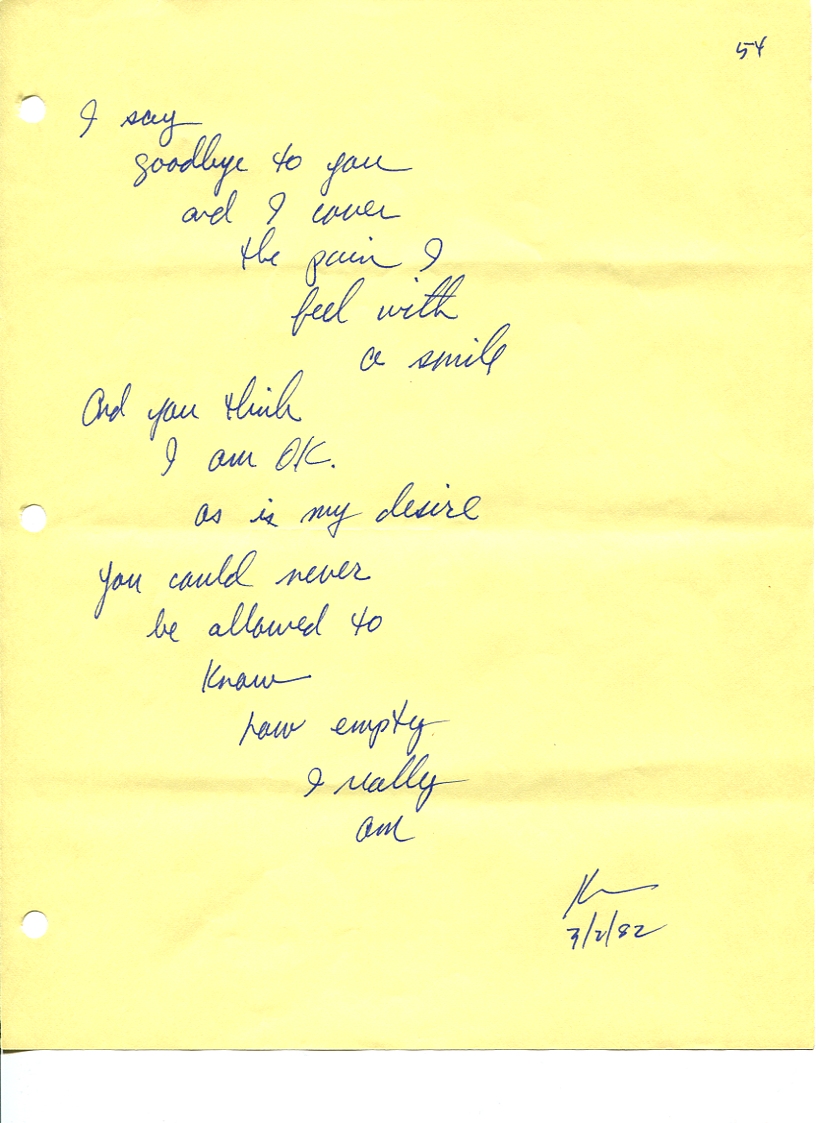 54
I say
goodbye to you
and I cover
the pain I
feel with
a smile
And you think
I am OK.
as is my desire
you could never
be allowed to
know
how empty
I really
am
3/2/82